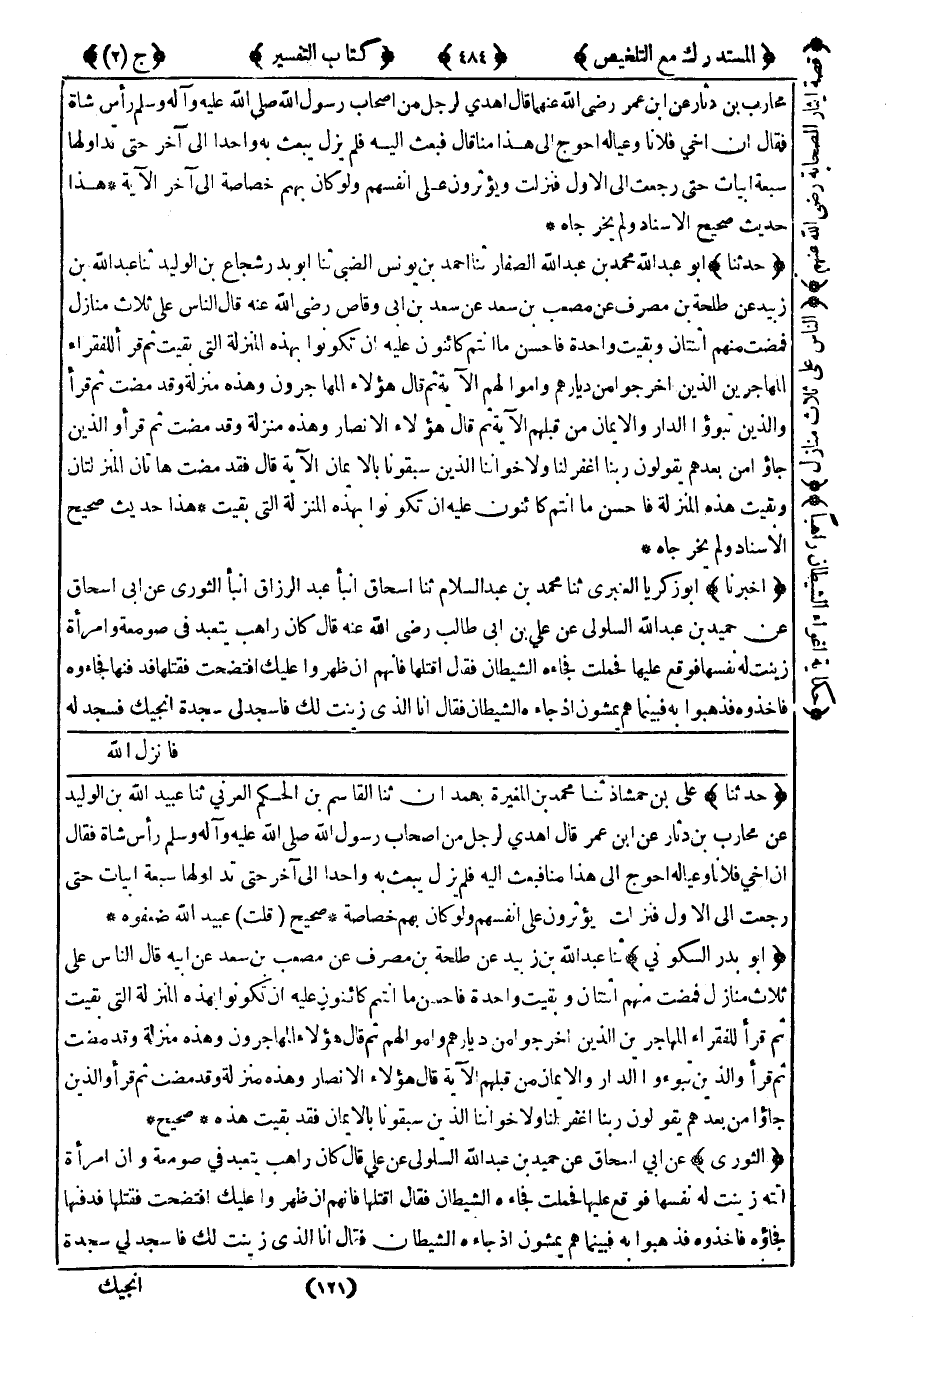 ﴿ المستدرك مع التلخيص ﴾ ﴿ ٤٨٤ ﴾ ﴿ كتاب التفسير ﴾ ﴿ ج (٢) ﴾
محارب بن دثار عن ابن عمر رضى الله عنهما قال اهدي لرجل من اصحاب رسول الله صلى الله عليه وآله وسلم رأس شاة
فقال ان اخي فلانا وعياله احوج الى هذا منا قال فبعث اليه فلم يزل يبعث به واحدا الى آخر حتى تداولها
سبعة ابيات حتى رجعت الى الاول فنزلت ويؤثرون على انفسهم ولو كان بهم خصاصة الى آخر الآية * هذا
حديث صحيح الاسناد ولم يخرجاه *
﴿ حدثنا ﴾ ابو عبد الله محمد بن عبد الله الصفار ثنا احمد بن يونس الضبي ثنا ابو بدر شجاع بن الوليد ثنا عبد الله بن
زبيد عن طلحة بن مصرف عن مصعب بن سعد عن سعد بن ابى وقاص رضى الله عنه قال الناس على ثلاث منازل
فمضت منهم اثنتان وبقيت واحدة فاحسن ما انتم كائنون عليه ان تكونوا بهذه المنزلة التى بقيت ثم قرأ للفقراء
المهاجرين الذين اخرجوا من ديارهم واموالهم الآية ثم قال هؤلاء المهاجرون وهذه منزلة وقد مضت ثم قرأ
والذين تبوؤا الدار والايمان من قبلهم الآية ثم قال هؤلاء الانصار وهذه منزلة وقد مضت ثم قرأ والذين
جاؤ امن بعدهم يقولون ربنا اغفر لنا ولاخواننا الذين سبقونا بالايمان الآية قال فقد مضت هاتان المنزلتان
وبقيت هذه المنزلة فاحسن ما انتم كائنون عليه ان تكونوا بهذه المنزلة التى بقيت * هذا حديث صحيح
الاسناد ولم يخرجاه *
﴿ اخبرنا ﴾ ابو زكريا العنبرى ثنا محمد بن عبد السلام ثنا اسحاق انبأ عبد الرزاق انبأ الثورى عن ابى اسحاق
عن حميد بن عبد الله السلولى عن علي بن ابى طالب رضى الله عنه قال كان راهب يتعبد فى صومعة وامرأة
زينت له نفسها فوقع عليها فحملت فجاءه الشيطان فقال اقتلها فانهم ان ظهروا عليك افتضحت فقتلها فدفنها فجاءوه
فاخذوه فذهبوا به فبينما هم يمشون اذ جاءه الشيطان فقال انا الذى زينت لك فاسجد لى سجدة انجيك فسجد له
فانزل الله
﴿ حدثنا ﴾ على بن حمشاذ ثنا محمد بن المغيرة بهمدان ثنا القاسم بن الحكم العرني ثنا عبيد الله بن الوليد
عن محارب بن دثار عن ابن عمر قال اهدي لرجل من اصحاب رسول الله صلى الله عليه وآله وسلم رأس شاة فقال
ان اخي فلانا وعياله احوج الى هذا منا فبعث اليه فلم يزل يبعث به واحدا الى آخر حتى تداولها سبعة ابيات حتى
رجعت الى الاول فنزلت يؤثرون على انفسهم ولو كان بهم خصاصة * صحيح (قلت) عبيد الله ضعفوه *
﴿ ابو بدر السكوني ﴾ ثنا عبد الله بن زبيد عن طلحة بن مصرف عن مصعب بن سعد عن ابيه قال الناس على
ثلاث منازل فمضت منهم اثنتان وبقيت واحدة فاحسن ما انتم كائنون عليه ان تكونوا بهذه المنزلة التى بقيت
ثم قرأ للفقراء المهاجرين الذين اخرجوا من ديارهم واموالهم ثم قال هؤلاء المهاجرون وهذه منزلة وقد مضت
ثم قرأ والذين تبوءوا الدار والايمان من قبلهم الآية قال هؤلاء الانصار وهذه منزلة وقد مضت ثم قرأ والذين
جاؤا من بعدهم يقولون ربنا اغفر لنا ولاخواننا الذين سبقونا بالايمان فقد بقيت هذه * صحيح *
﴿ الثورى ﴾ عن ابي اسحاق عن حميد بن عبد الله السلولى عن علي قال كان راهب يتعبد في صومعة وان امرأة
اتته زينت له نفسها فوقع عليها فحملت فجاءه الشيطان فقال اقتلها فانهم ان ظهروا عليك افتضحت فقتلها فدفنها
فجاؤه فاخذوه فذهبوا به فبينما هم يمشون اذ جاءه الشيطان فقال انا الذى زينت لك فاسجد لي سجدة
(١٢١) انجيك
﴿ قصة ايثار الصحابة رضى الله عنهم ﴾ ﴿ الناس على ثلاث منازل ﴾ ﴿ حكاية اغواء الشيطان راهبا ﴾